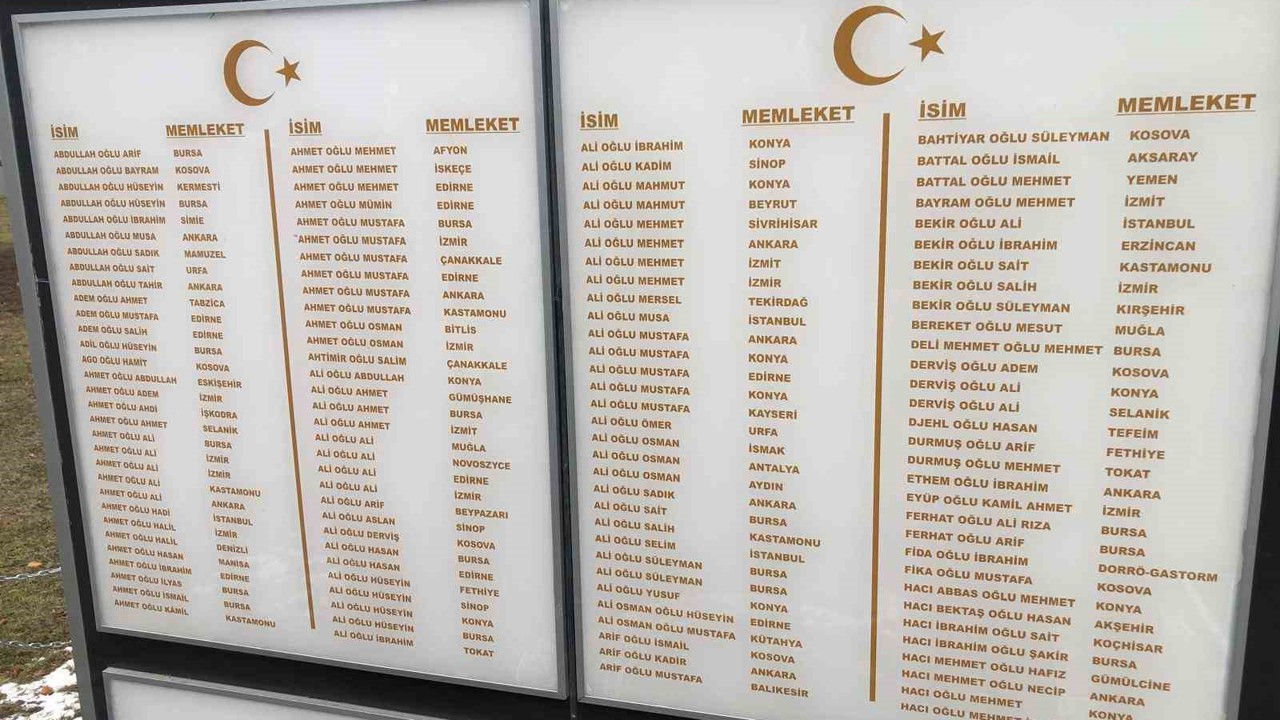 İSİM MEMLEKET
ABDULLAH OĞLU ARİF BURSA
ABDULLAH OĞLU BAYRAM KOSOVA
ABDULLAH OĞLU HÜSEYİN KERMESTİ
ABDULLAH OĞLU HÜSEYİN BURSA
ABDULLAH OĞLU İBRAHİM SİMİE
ABDULLAH OĞLU MUSA ANKARA
ABDULLAH OĞLU SADIK MAMUZEL
ABDULLAH OĞLU SAİT URFA
ABDULLAH OĞLU TAHİR ANKARA
ADEM OĞLU AHMET TABZİCA
ADEM OĞLU MUSTAFA EDİRNE
ADEM OĞLU SALİH EDİRNE
ADİL OĞLU HÜSEYİN BURSA
AGO OĞLU HAMİT KOSOVA
AHMET OĞLU ABDULLAH ESKİŞEHİR
AHMET OĞLU ADEM İZMİR
AHMET OĞLU AHDİ İŞKODRA
AHMET OĞLU AHMET SELANİK
AHMET OĞLU ALİ BURSA
AHMET OĞLU ALİ İZMİR
AHMET OĞLU ALİ İZMİR
AHMET OĞLU ALİ KASTAMONU
AHMET OĞLU ALİ ANKARA
AHMET OĞLU HADİ İSTANBUL
AHMET OĞLU HALİL İZMİR
AHMET OĞLU HALİL DENİZLİ
AHMET OĞLU HASAN MANİSA
AHMET OĞLU İBRAHİM EDİRNE
AHMET OĞLU İLYAS BURSA
AHMET OĞLU İSMAİL BURSA
AHMET OĞLU KAMİL KASTAMONU
İSİM MEMLEKET
AHMET OĞLU MEHMET AFYON
AHMET OĞLU MEHMET İSKEÇE
AHMET OĞLU MEHMET EDİRNE
AHMET OĞLU MÜMİN EDİRNE
AHMET OĞLU MUSTAFA BURSA
AHMET OĞLU MUSTAFA İZMİR
AHMET OĞLU MUSTAFA ÇANAKKALE
AHMET OĞLU MUSTAFA EDİRNE
AHMET OĞLU MUSTAFA ANKARA
AHMET OĞLU MUSTAFA KASTAMONU
AHMET OĞLU OSMAN BİTLİS
AHMET OĞLU OSMAN İZMİR
AHTİMİR OĞLU SALİM ÇANAKKALE
ALİ OĞLU ABDULLAH KONYA
ALİ OĞLU AHMET GÜMÜŞHANE
ALİ OĞLU AHMET BURSA
ALİ OĞLU AHMET İZMİT
ALİ OĞLU ALİ MUĞLA
ALİ OĞLU ALİ NOVOSZYCE
ALİ OĞLU ALİ EDİRNE
ALİ OĞLU ALİ İZMİR
ALİ OĞLU ARİF BEYPAZARI
ALİ OĞLU ASLAN SİNOP
ALİ OĞLU DERVİŞ KOSOVA
ALİ OĞLU HASAN BURSA
ALİ OĞLU HASAN EDİRNE
ALİ OĞLU HÜSEYİN FETHİYE
ALİ OĞLU HÜSEYİN SİNOP
ALİ OĞLU HÜSEYİN KONYA
ALİ OĞLU HÜSEYİN BURSA
ALİ OĞLU İBRAHİM TOKAT
İSİM MEMLEKET
ALİ OĞLU İBRAHİM KONYA
ALİ OĞLU KADİM SİNOP
ALİ OĞLU MAHMUT KONYA
ALİ OĞLU MAHMUT BEYRUT
ALİ OĞLU MEHMET SİVRİHİSAR
ALİ OĞLU MEHMET ANKARA
ALİ OĞLU MEHMET İZMİT
ALİ OĞLU MEHMET İZMİR
ALİ OĞLU MERSEL TEKİRDAĞ
ALİ OĞLU MUSA İSTANBUL
ALİ OĞLU MUSTAFA ANKARA
ALİ OĞLU MUSTAFA KONYA
ALİ OĞLU MUSTAFA EDİRNE
ALİ OĞLU MUSTAFA KONYA
ALİ OĞLU MUSTAFA KAYSERİ
ALİ OĞLU ÖMER URFA
ALİ OĞLU OSMAN İSMAK
ALİ OĞLU OSMAN ANTALYA
ALİ OĞLU OSMAN AYDIN
ALİ OĞLU SADIK ANKARA
ALİ OĞLU SAİT BURSA
ALİ OĞLU SALİH KASTAMONU
ALİ OĞLU SELİM İSTANBUL
ALİ OĞLU SÜLEYMAN BURSA
ALİ OĞLU SÜLEYMAN BURSA
ALİ OĞLU YUSUF KONYA
ALİ OSMAN OĞLU HÜSEYİN EDİRNE
ALİ OSMAN OĞLU MUSTAFA KÜTAHYA
ARİF OĞLU İSMAİL KOSOVA
ARİF OĞLU KADİR ANKARA
ARİF OĞLU MUSTAFA BALIKESİR
İSİM MEMLEKET
BAHTİYAR OĞLU SÜLEYMAN KOSOVA
BATTAL OĞLU İSMAİL AKSARAY
BATTAL OĞLU MEHMET YEMEN
BAYRAM OĞLU MEHMET İZMİT
BEKİR OĞLU ALİ İSTANBUL
BEKİR OĞLU İBRAHİM ERZİNCAN
BEKİR OĞLU SAİT KASTAMONU
BEKİR OĞLU SALİH İZMİR
BEKİR OĞLU SÜLEYMAN KIRŞEHİR
BEREKET OĞLU MESUT MUĞLA
DELİ MEHMET OĞLU MEHMET BURSA
DERVİŞ OĞLU ADEM KOSOVA
DERVİŞ OĞLU ALİ KONYA
DERVİŞ OĞLU ALİ SELANİK
DJEHL OĞLU HASAN TEFEİM
DURMUŞ OĞLU ARİF FETHİYE
DURMUŞ OĞLU MEHMET TOKAT
ETHEM OĞLU İBRAHİM ANKARA
EYÜP OĞLU KAMİL AHMET İZMİR
FERHAT OĞLU ALİ RIZA BURSA
FERHAT OĞLU ARİF BURSA
FİDA OĞLU İBRAHİM DORRÖ-GASTORM
FİKA OĞLU MUSTAFA KOSOVA
HACI ABBAS OĞLU MEHMET KONYA
HACI BEKTAŞ OĞLU HASAN AKŞEHİR
HACI İBRAHİM OĞLU SAİT KOÇHİSAR
HACI İBRAHİM OĞLU ŞAKİR BURSA
HACI MEHMET OĞLU HAFIZ GÜMÜLCİNE
HACI MEHMET OĞLU NECİP ANKARA
HACI OĞLU MEHMET KONYA
HACI OĞLU MEHMET